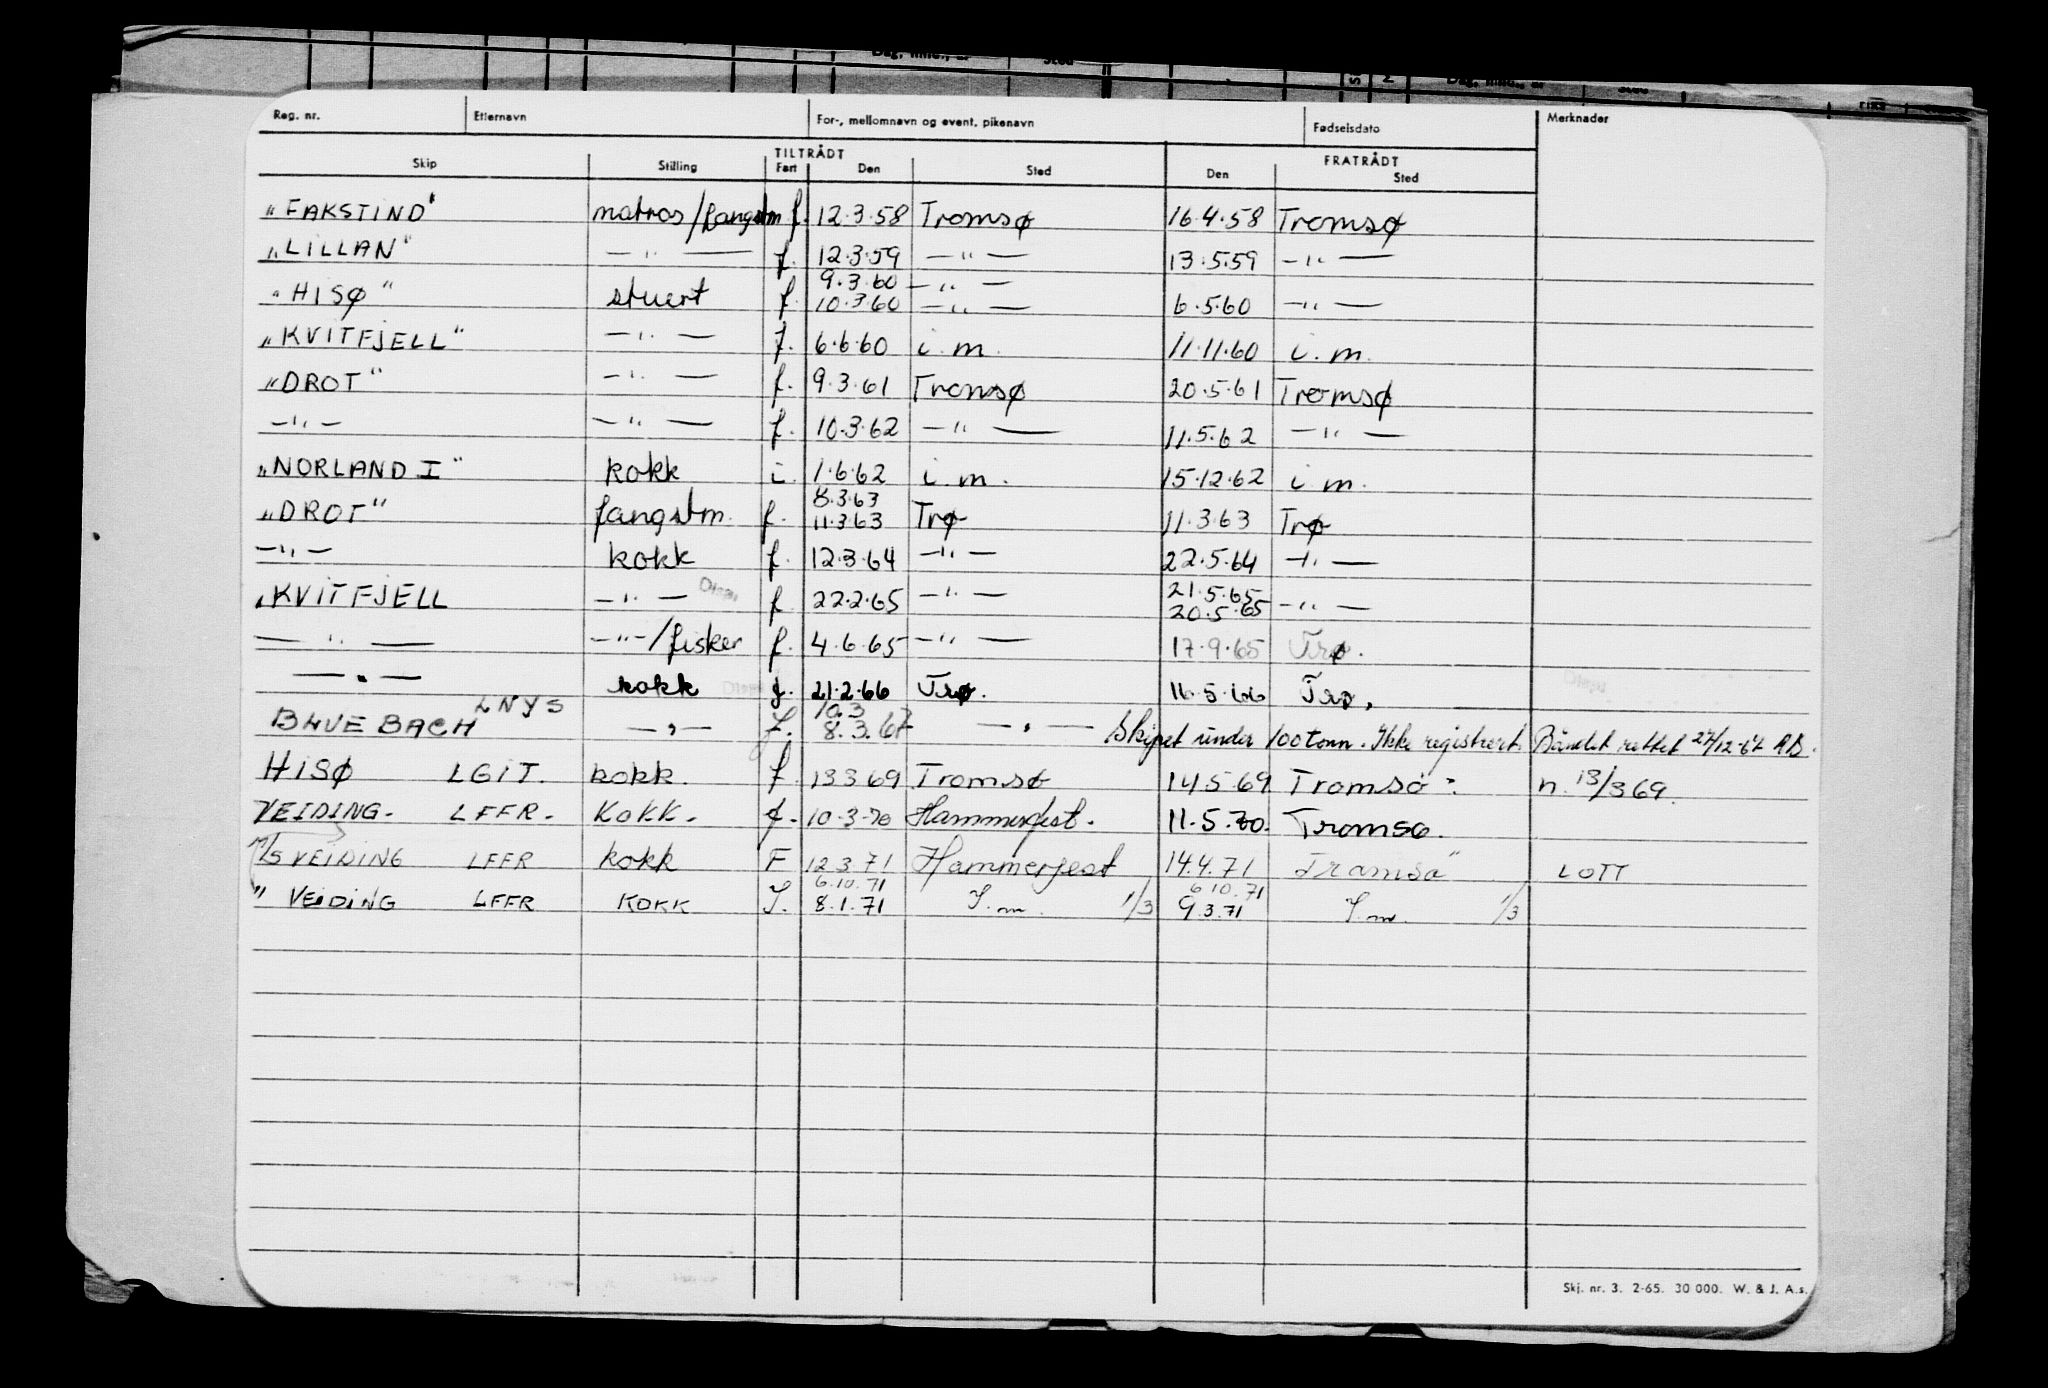 Reg. nr. Etternavn For-, mellomnavn og event. pikenavn Fødselsdato Merknader
TILTRÅDT FRATRÅDT
Skip Stilling Fart Den Sted Den Sted
"FAKSTIND" matros/fangstm f. 12.3.58 Tromsø 16.4.58 Tromsø
"LILLAN" — " — f. 12.3.59 — " — 13.5.59 — " —
9.3.60 — " —
"HISØ" stuert f. 10.3.60 — " — 6.5.60 — " —
"KVITFJELL" — " — f. 6.6.60 i. m. 11.11.60 i. m.
"DROT" — " — f. 9.3.61 Tromsø 20.5.61 Tromsø
— " — — " — f. 10.3.62 — " — 11.5.62 — " —
"NORLAND I" kokk i. 1.6.62 i. m. 15.12.62 i. m.
8.3.63
"DROT" fangstm. f. 11.3.63 Trø 11.3.63 Trø
— " — kokk f. 12.3.64 — " — 22.5.64 — " —
21.5.65
"KVITFJELL — " — f 22.2.65 — " — 20.5.65 — " —
— " — — " — /fisker f. 4.6.65 — " — 17.9.65 Trø.
— " — kokk f. 21.2.66 Trø. 16.5.66 Trø.
LNYS 10.3
BLUE BACH — " — f. 8.3.67 — " — Skipet under 100 tonn. Ikke registrert. Båndet rettet 27/12-67 AB.
HISØ LGIT. kokk. f 13 3 69 Tromsø 14.5.69 Tromsø n. 13/3 69.
VEIDING. LFFR. KOKK. f. 10-3-70 Hammerfest. 11.5.70. Tromsø.
M/S VEIDING LFFR kokk F 12.3.71 Hammerfest 14.4.71 Tromsø LOTT
6.10.71 6 10.71
" VEIDING LFFR KOKK I. 8.1.71 I.m. 1/3 9.3.71 I.m. 1/3
Skj. nr. 3. 2-65. 30 000. W. & J. A.s.